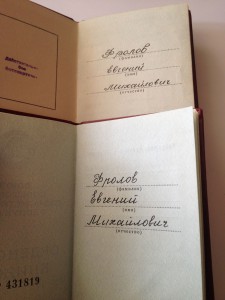 Фролов
(фамилия)
Евгений
(имя)
Михайлович
(отчество)
Фролов
(фамилия)
Евгений
(имя)
Михайлович
(отчество)
431819